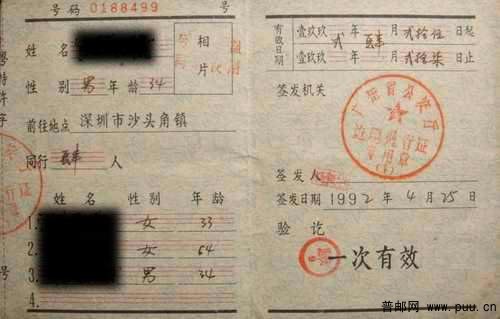 号码 0188499
姓名
相片
性别 男 年龄 34
前往地点 深圳市沙头角镇
同行 叁 人
姓名 性别 年龄
1. 女 33
2. 女 64
3. 男 34
4.
号
有效日期
壹玖玖 贰 年 月 贰拾伍 日起
壹玖玖 年 月 贰拾柒 日止
签发机关
广东省公安厅
边境通行证
专用章
签发人
签发日期 1992 年 4 月 25 日
验讫
一次有效
普邮网 www.puu.cn